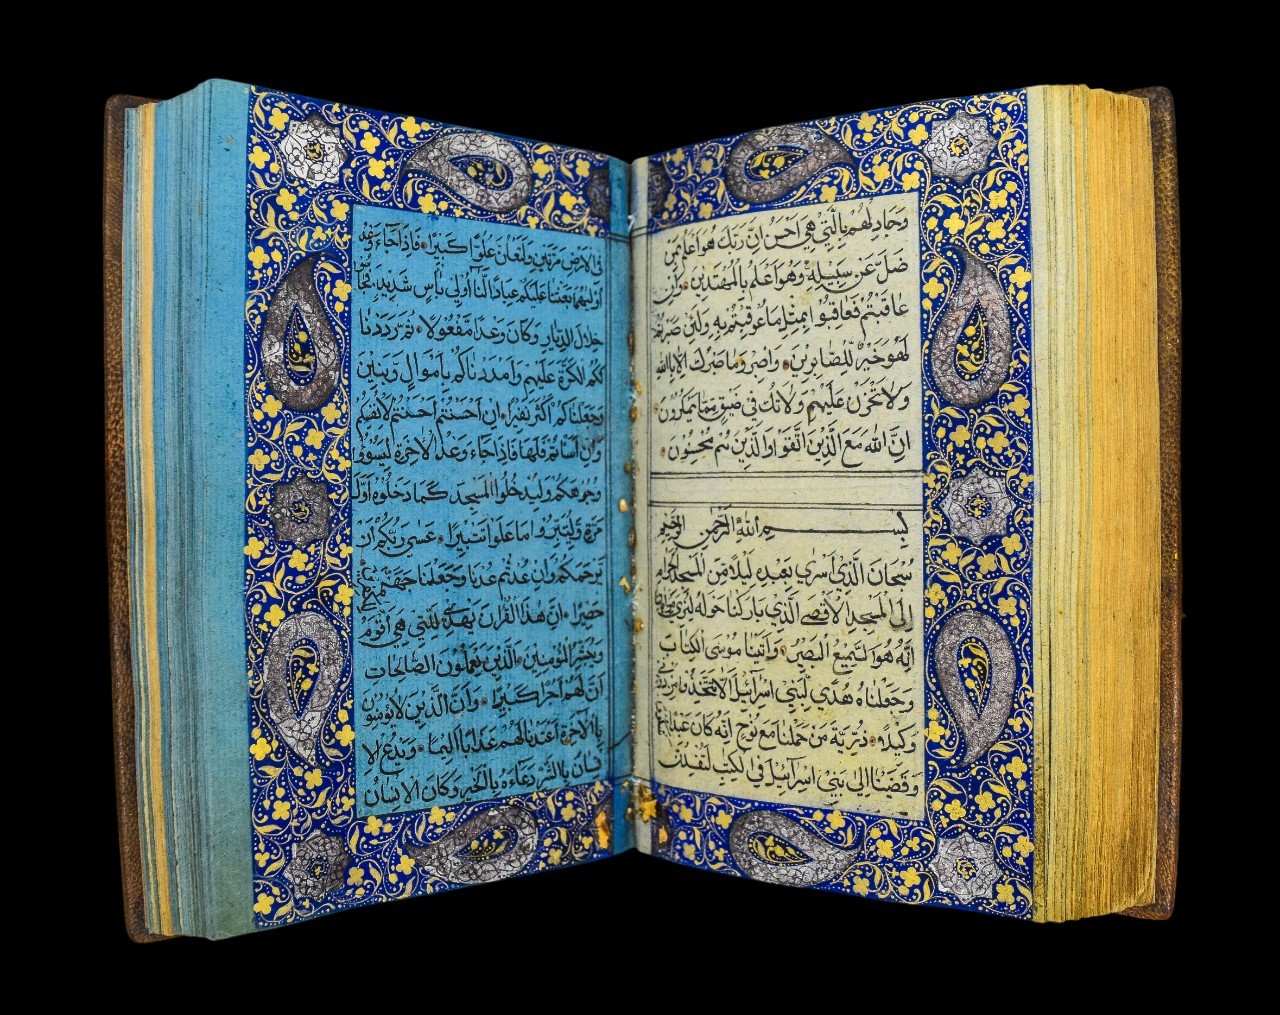 وَجَادِلْهُمْ بِالَّتِي هِيَ أَحْسَنُ إِنَّ رَبَّكَ هُوَ أَعْلَمُ بِمَنْ
ضَلَّ عَنْ سَبِيلِهِ وَهُوَ أَعْلَمُ بِالْمُهْتَدِينَ وَإِنْ
عَاقَبْتُمْ فَعَاقِبُوا بِمِثْلِ مَا عُوقِبْتُمْ بِهِ وَلَئِنْ صَبَرْتُمْ
لَهُوَ خَيْرٌ لِلصَّابِرِينَ وَاصْبِرْ وَمَا صَبْرُكَ إِلَّا بِاللَّهِ
وَلَا تَحْزَنْ عَلَيْهِمْ وَلَا تَكُ فِي ضَيْقٍ مِمَّا يَمْكُرُونَ
إِنَّ اللَّهَ مَعَ الَّذِينَ اتَّقَوْا وَالَّذِينَ هُمْ مُحْسِنُونَ
بِسْمِ اللَّهِ الرَّحْمَٰنِ الرَّحِيمِ
سُبْحَانَ الَّذِي أَسْرَىٰ بِعَبْدِهِ لَيْلًا مِنَ الْمَسْجِدِ الْحَرَامِ
إِلَى الْمَسْجِدِ الْأَقْصَى الَّذِي بَارَكْنَا حَوْلَهُ لِنُرِيَهُ مِنْ آيَاتِنَا
إِنَّهُ هُوَ السَّمِيعُ الْبَصِيرُ وَآتَيْنَا مُوسَى الْكِتَابَ
وَجَعَلْنَاهُ هُدًى لِبَنِي إِسْرَائِيلَ أَلَّا تَتَّخِذُوا مِنْ دُونِي
وَكِيلًا ذُرِّيَّةَ مَنْ حَمَلْنَا مَعَ نُوحٍ إِنَّهُ كَانَ عَبْدًا
وَقَضَيْنَا إِلَىٰ بَنِي إِسْرَائِيلَ فِي الْكِتَابِ لَتُفْسِدُنَّ
فِي الْأَرْضِ مَرَّتَيْنِ وَلَتَعْلُنَّ عُلُوًّا كَبِيرًا فَإِذَا جَاءَ وَعْدُ
أُولَاهُمَا بَعَثْنَا عَلَيْكُمْ عِبَادًا لَنَا أُولِي بَأْسٍ شَدِيدٍ فَجَاسُوا
خِلَالَ الدِّيَارِ وَكَانَ وَعْدًا مَفْعُولًا ثُمَّ رَدَدْنَا
لَكُمُ الْكَرَّةَ عَلَيْهِمْ وَأَمْدَدْنَاكُمْ بِأَمْوَالٍ وَبَنِينَ
وَجَعَلْنَاكُمْ أَكْثَرَ نَفِيرًا إِنْ أَحْسَنْتُمْ أَحْسَنْتُمْ لِأَنْفُسِكُمْ
وَإِنْ أَسَأْتُمْ فَلَهَا فَإِذَا جَاءَ وَعْدُ الْآخِرَةِ لِيَسُوءُوا
وُجُوهَكُمْ وَلِيَدْخُلُوا الْمَسْجِدَ كَمَا دَخَلُوهُ أَوَّلَ
مَرَّةٍ وَلِيُتَبِّرُوا مَا عَلَوْا تَتْبِيرًا عَسَىٰ رَبُّكُمْ أَنْ
يَرْحَمَكُمْ وَإِنْ عُدْتُمْ عُدْنَا وَجَعَلْنَا جَهَنَّمَ لِلْكَافِرِينَ
حَصِيرًا إِنَّ هَٰذَا الْقُرْآنَ يَهْدِي لِلَّتِي هِيَ أَقْوَمُ
وَيُبَشِّرُ الْمُؤْمِنِينَ الَّذِينَ يَعْمَلُونَ الصَّالِحَاتِ
أَنَّ لَهُمْ أَجْرًا كَبِيرًا وَأَنَّ الَّذِينَ لَا يُؤْمِنُونَ
بِالْآخِرَةِ أَعْتَدْنَا لَهُمْ عَذَابًا أَلِيمًا وَيَدْعُ الْإِ
نْسَانُ بِالشَّرِّ دُعَاءَهُ بِالْخَيْرِ وَكَانَ الْإِنْسَانُ